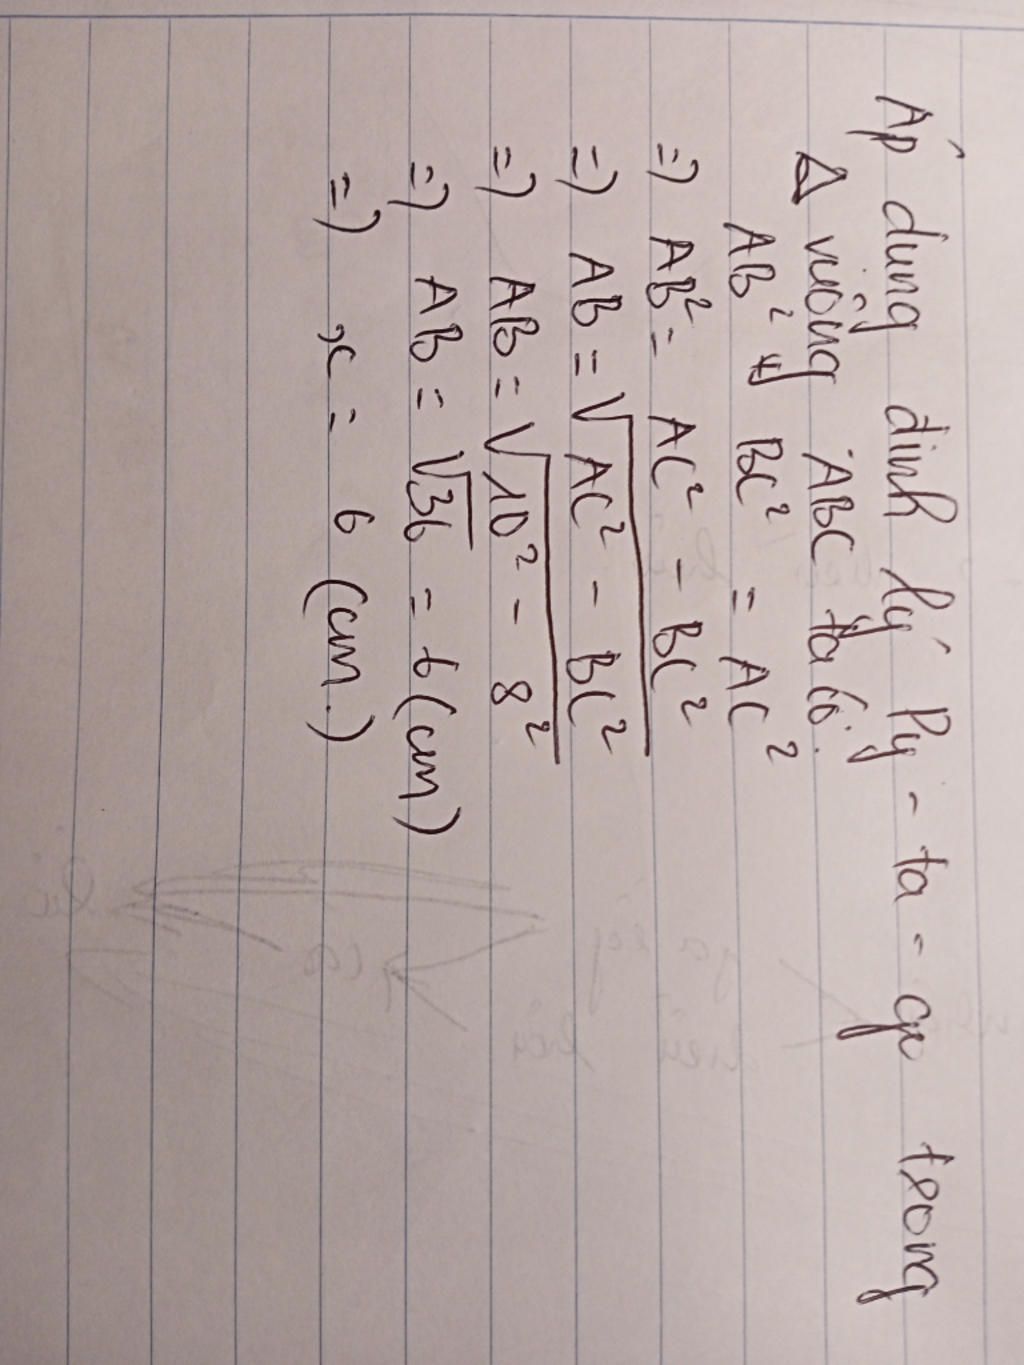 Áp dụng định lý Py - ta - go trong
Δ vuông ABC ta có:
AB² + BC² = AC²
=) AB² = AC² - BC²
=) AB = √AC² - BC²
=) AB = √10² - 8²
=) AB = √36 = 6 (cm)
=) x = 6 (cm)